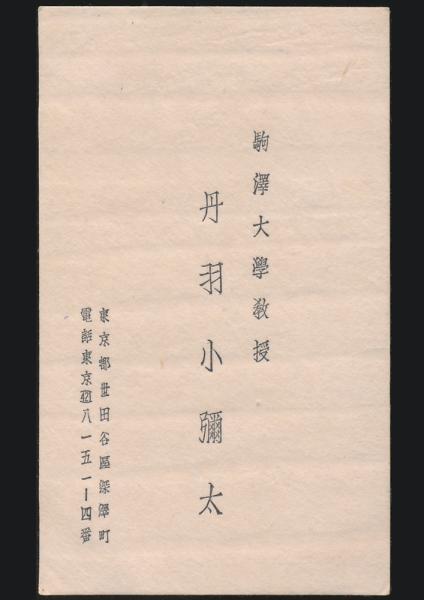 駒澤大學教授
丹羽小彌太
東京都世田谷區深澤町
電話東京八一五一ー四番